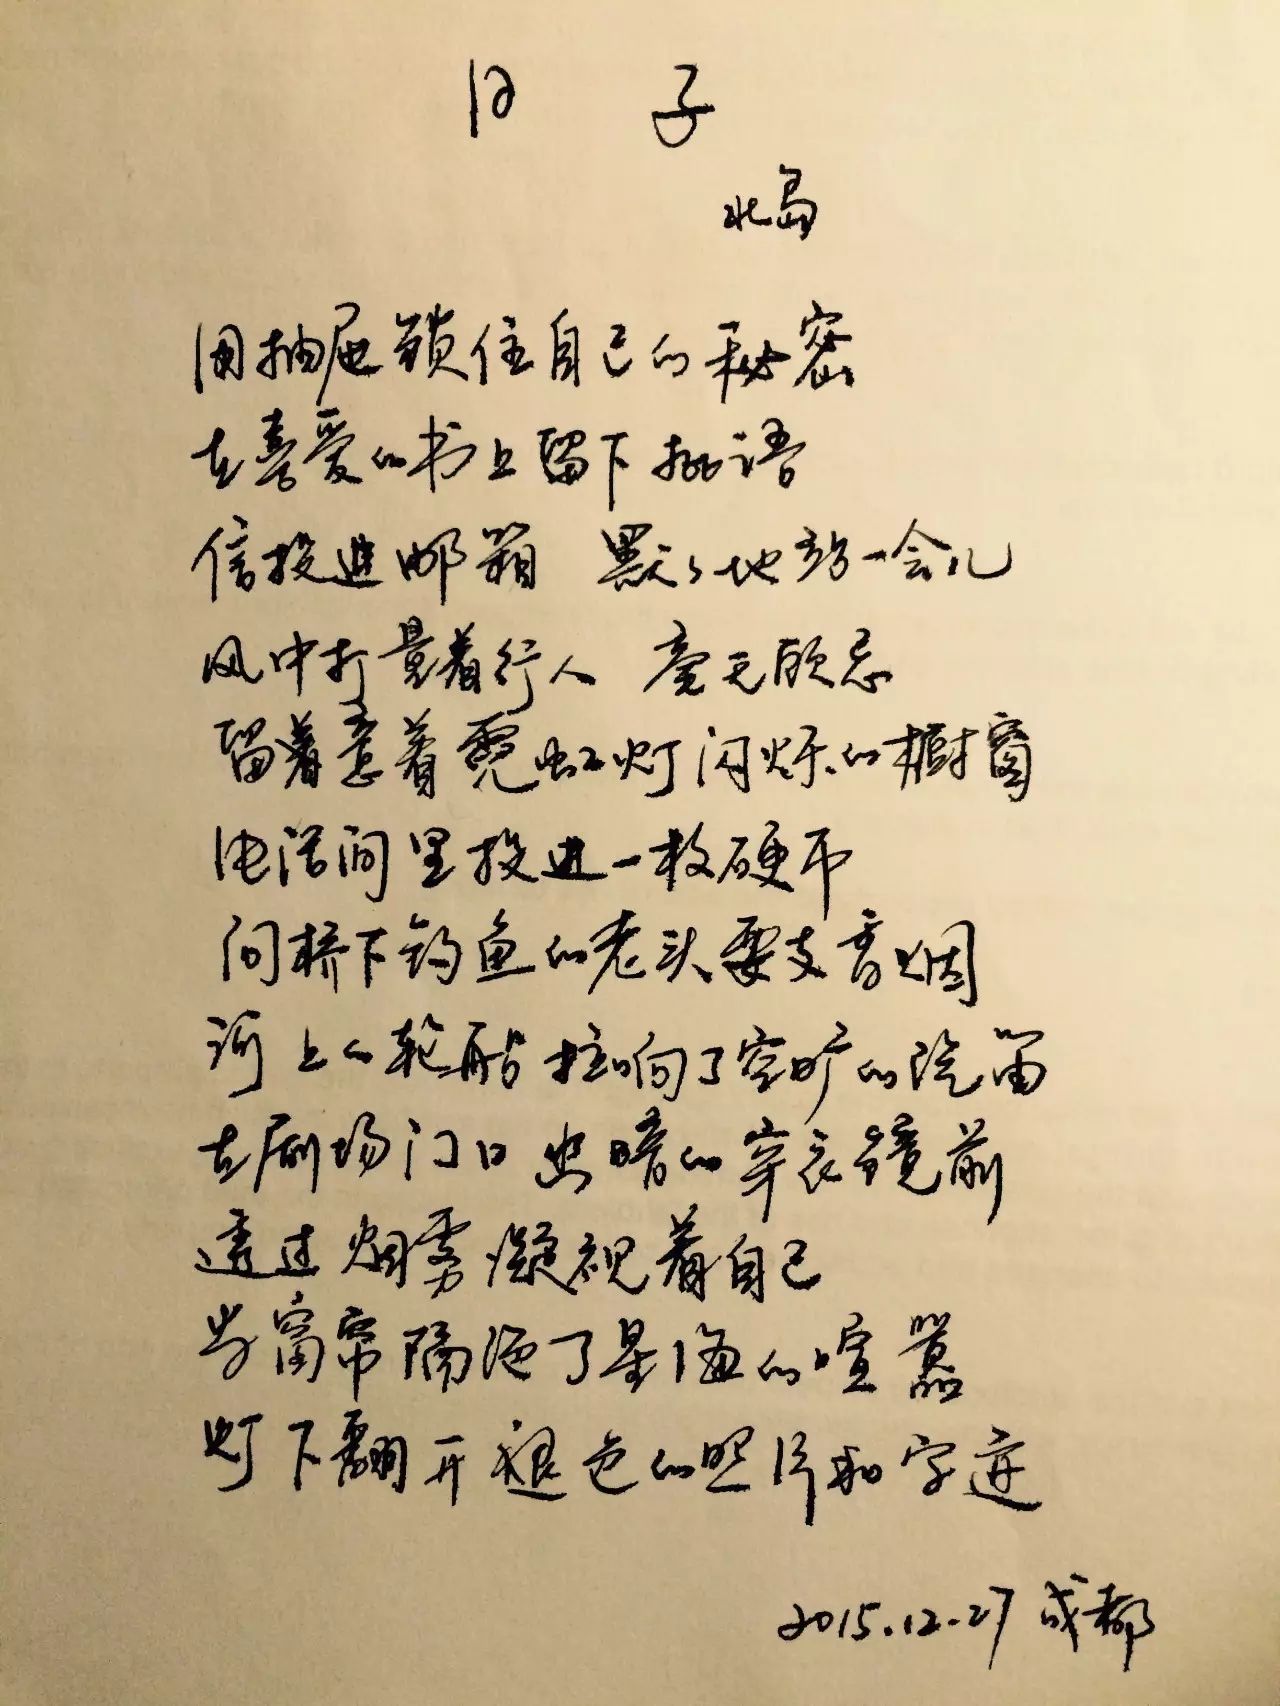 日子
北岛
用抽屉锁住自己的秘密
在喜爱的书上留下批语
信投进邮箱 默々地站一会儿
风中打量着行人 毫无顾忌
留着意着霓虹灯闪烁的橱窗
电话间里投进一枚硬币
问桥下钓鱼的老头要支香烟
河上的轮船拉响了空旷的汽笛
在剧场门口幽暗的穿衣镜前
透过烟雾凝视着自己
当窗帘隔绝了星海的喧嚣
灯下翻开褪色的照片和字迹
2015.12.27 成都